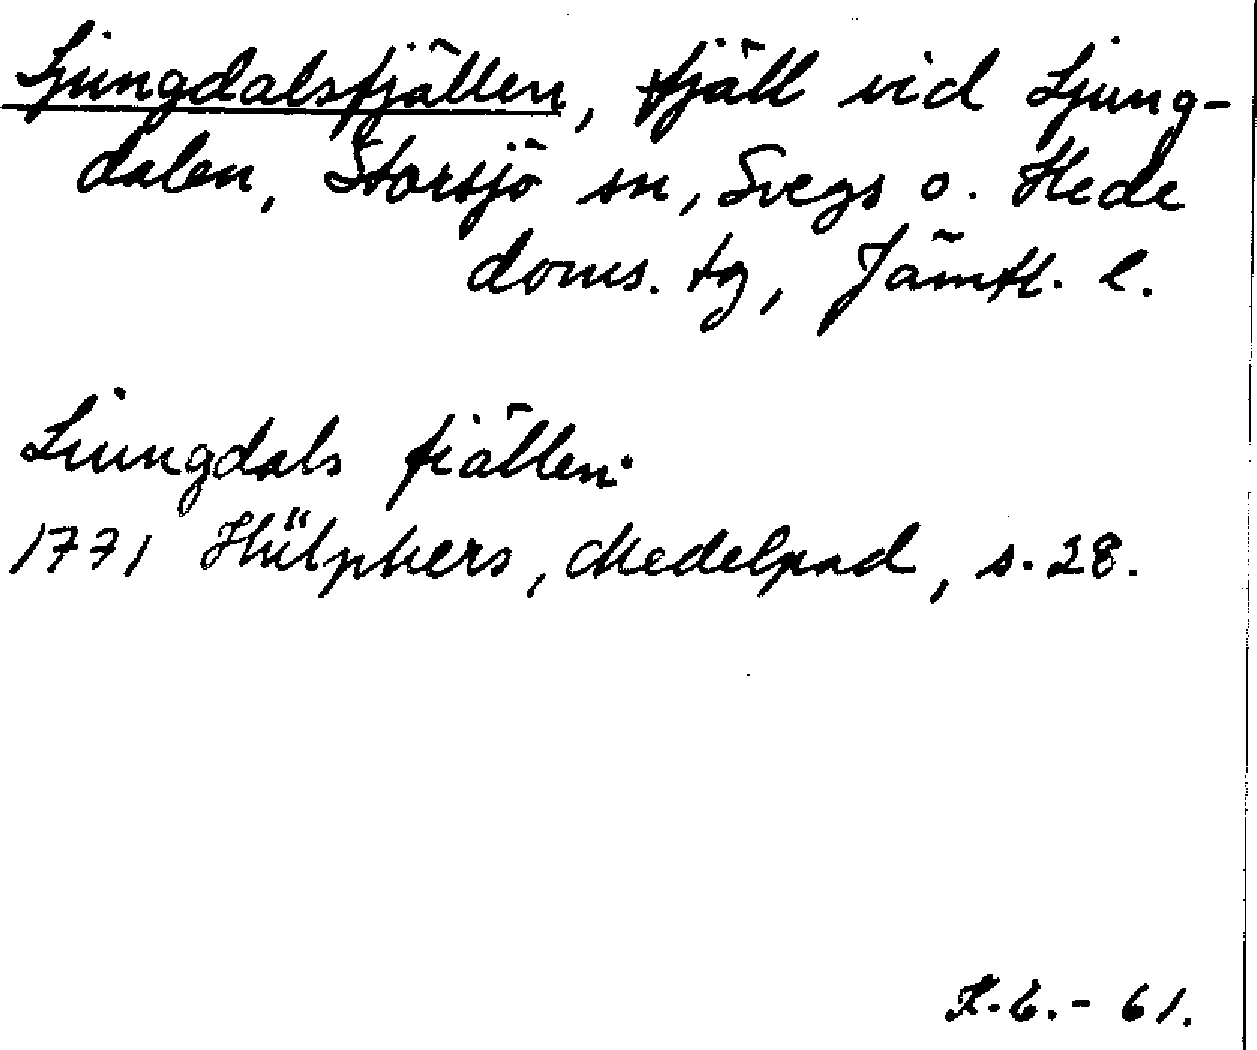 Ljungdalsfjällen, fjäll vid Ljung-
dalen, Storsjö sn, Svegs o. Hede
doms. tg, Jämtl. l.
Liungdals fiällen:
1771 Hülphers, Medelpad, s. 28.
K.E.- 61.